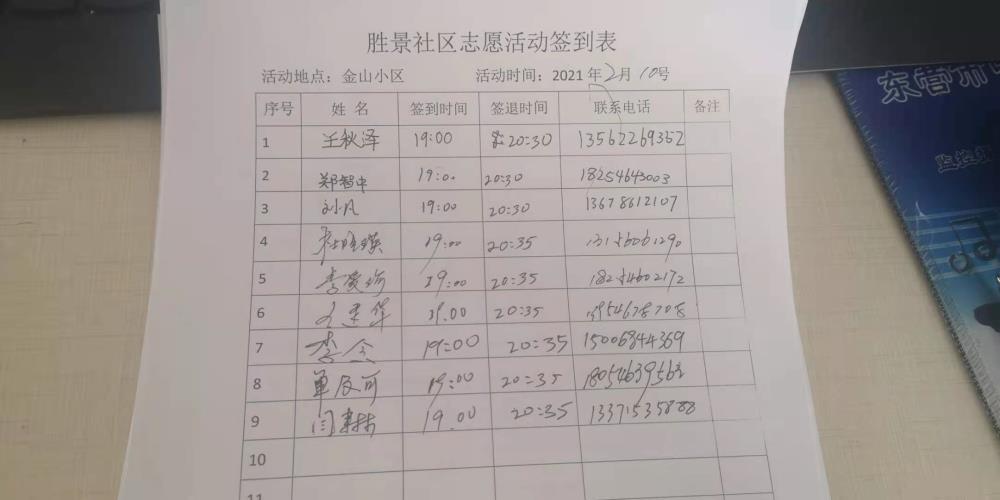 胜景社区志愿活动签到表
活动地点：金山小区 活动时间：2021年2月10号
序号 姓名 签到时间 签退时间 联系电话 备注
1 王秋泽 19:00 20:30 13562269352
2 郑智中 19:00 20:30 18254643003
3 刘凡 19:00 20:30 13678612107
4 19:00 20:35
5 19:00 20:35 18254602172
6 19:00 20:35
7 李 19:00 20:35 15006844369
8 单 19:00 20:35 18054639562
9 闫 19.00 20:35 13371535888
10
11
东营市
监控